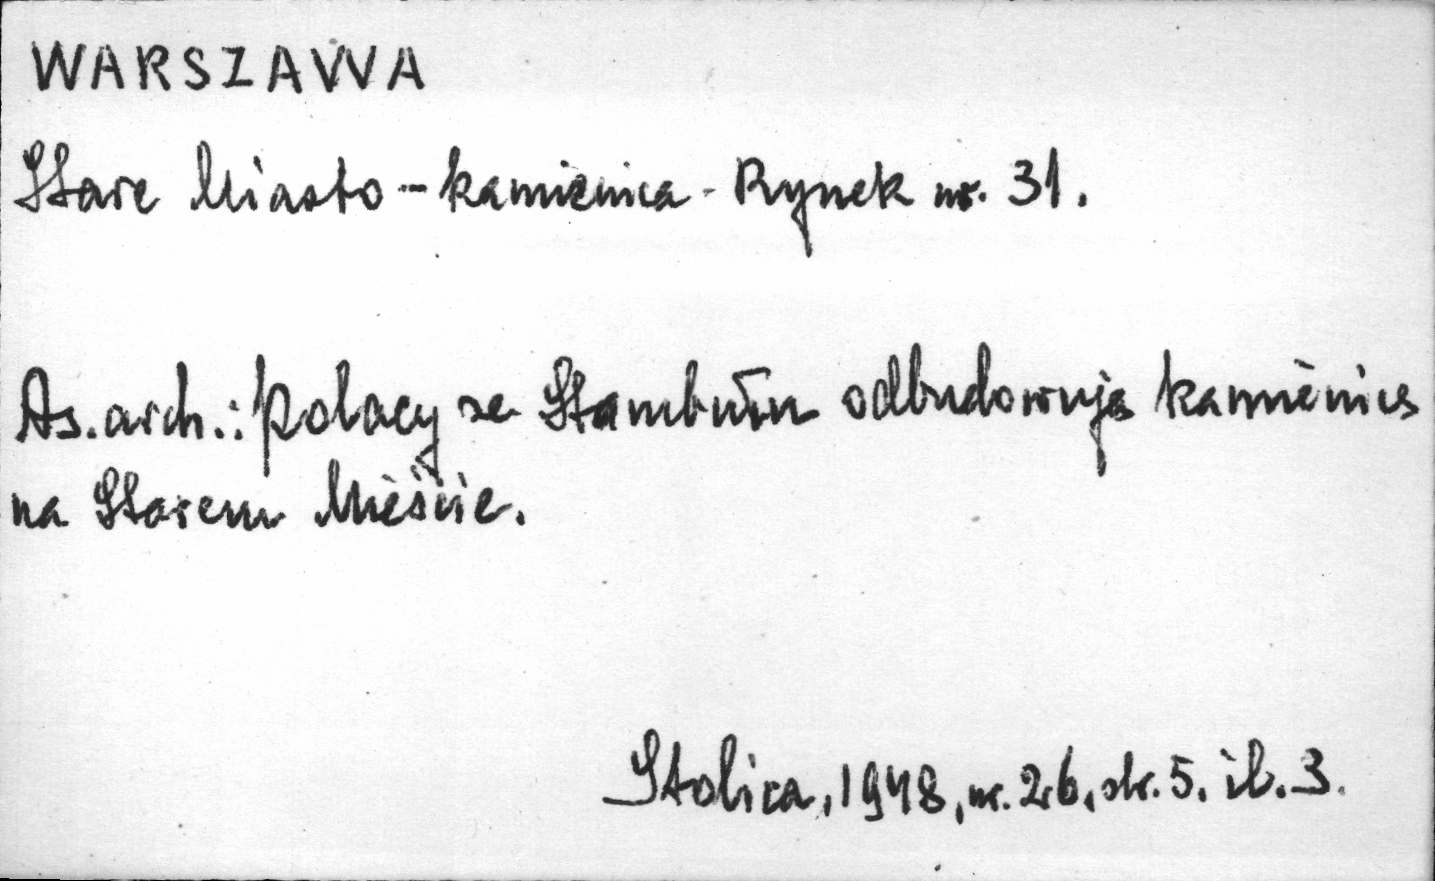 WARSZAWA
Stare Miasto - kamienica - Rynek nr. 31.
As. arch.: Polacy ze Stambułu odbudowują kamienicę
na Starem Mieście.
Stolica, 1948, nr. 26, str. 5. il. 3.